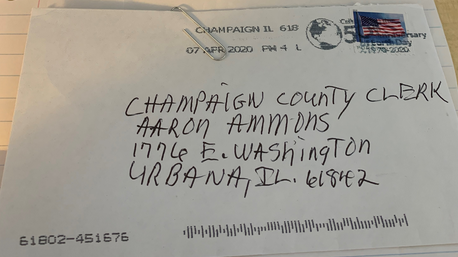 CHAMPAIGN IL 618
07 APR 2020 PM 4 L
5
1970-2020
CHAMPAIGN COUNTY CLERK
AARON AMMONS
1776 E. WASHINGTON
URBANA, IL. 61842
61802-451676